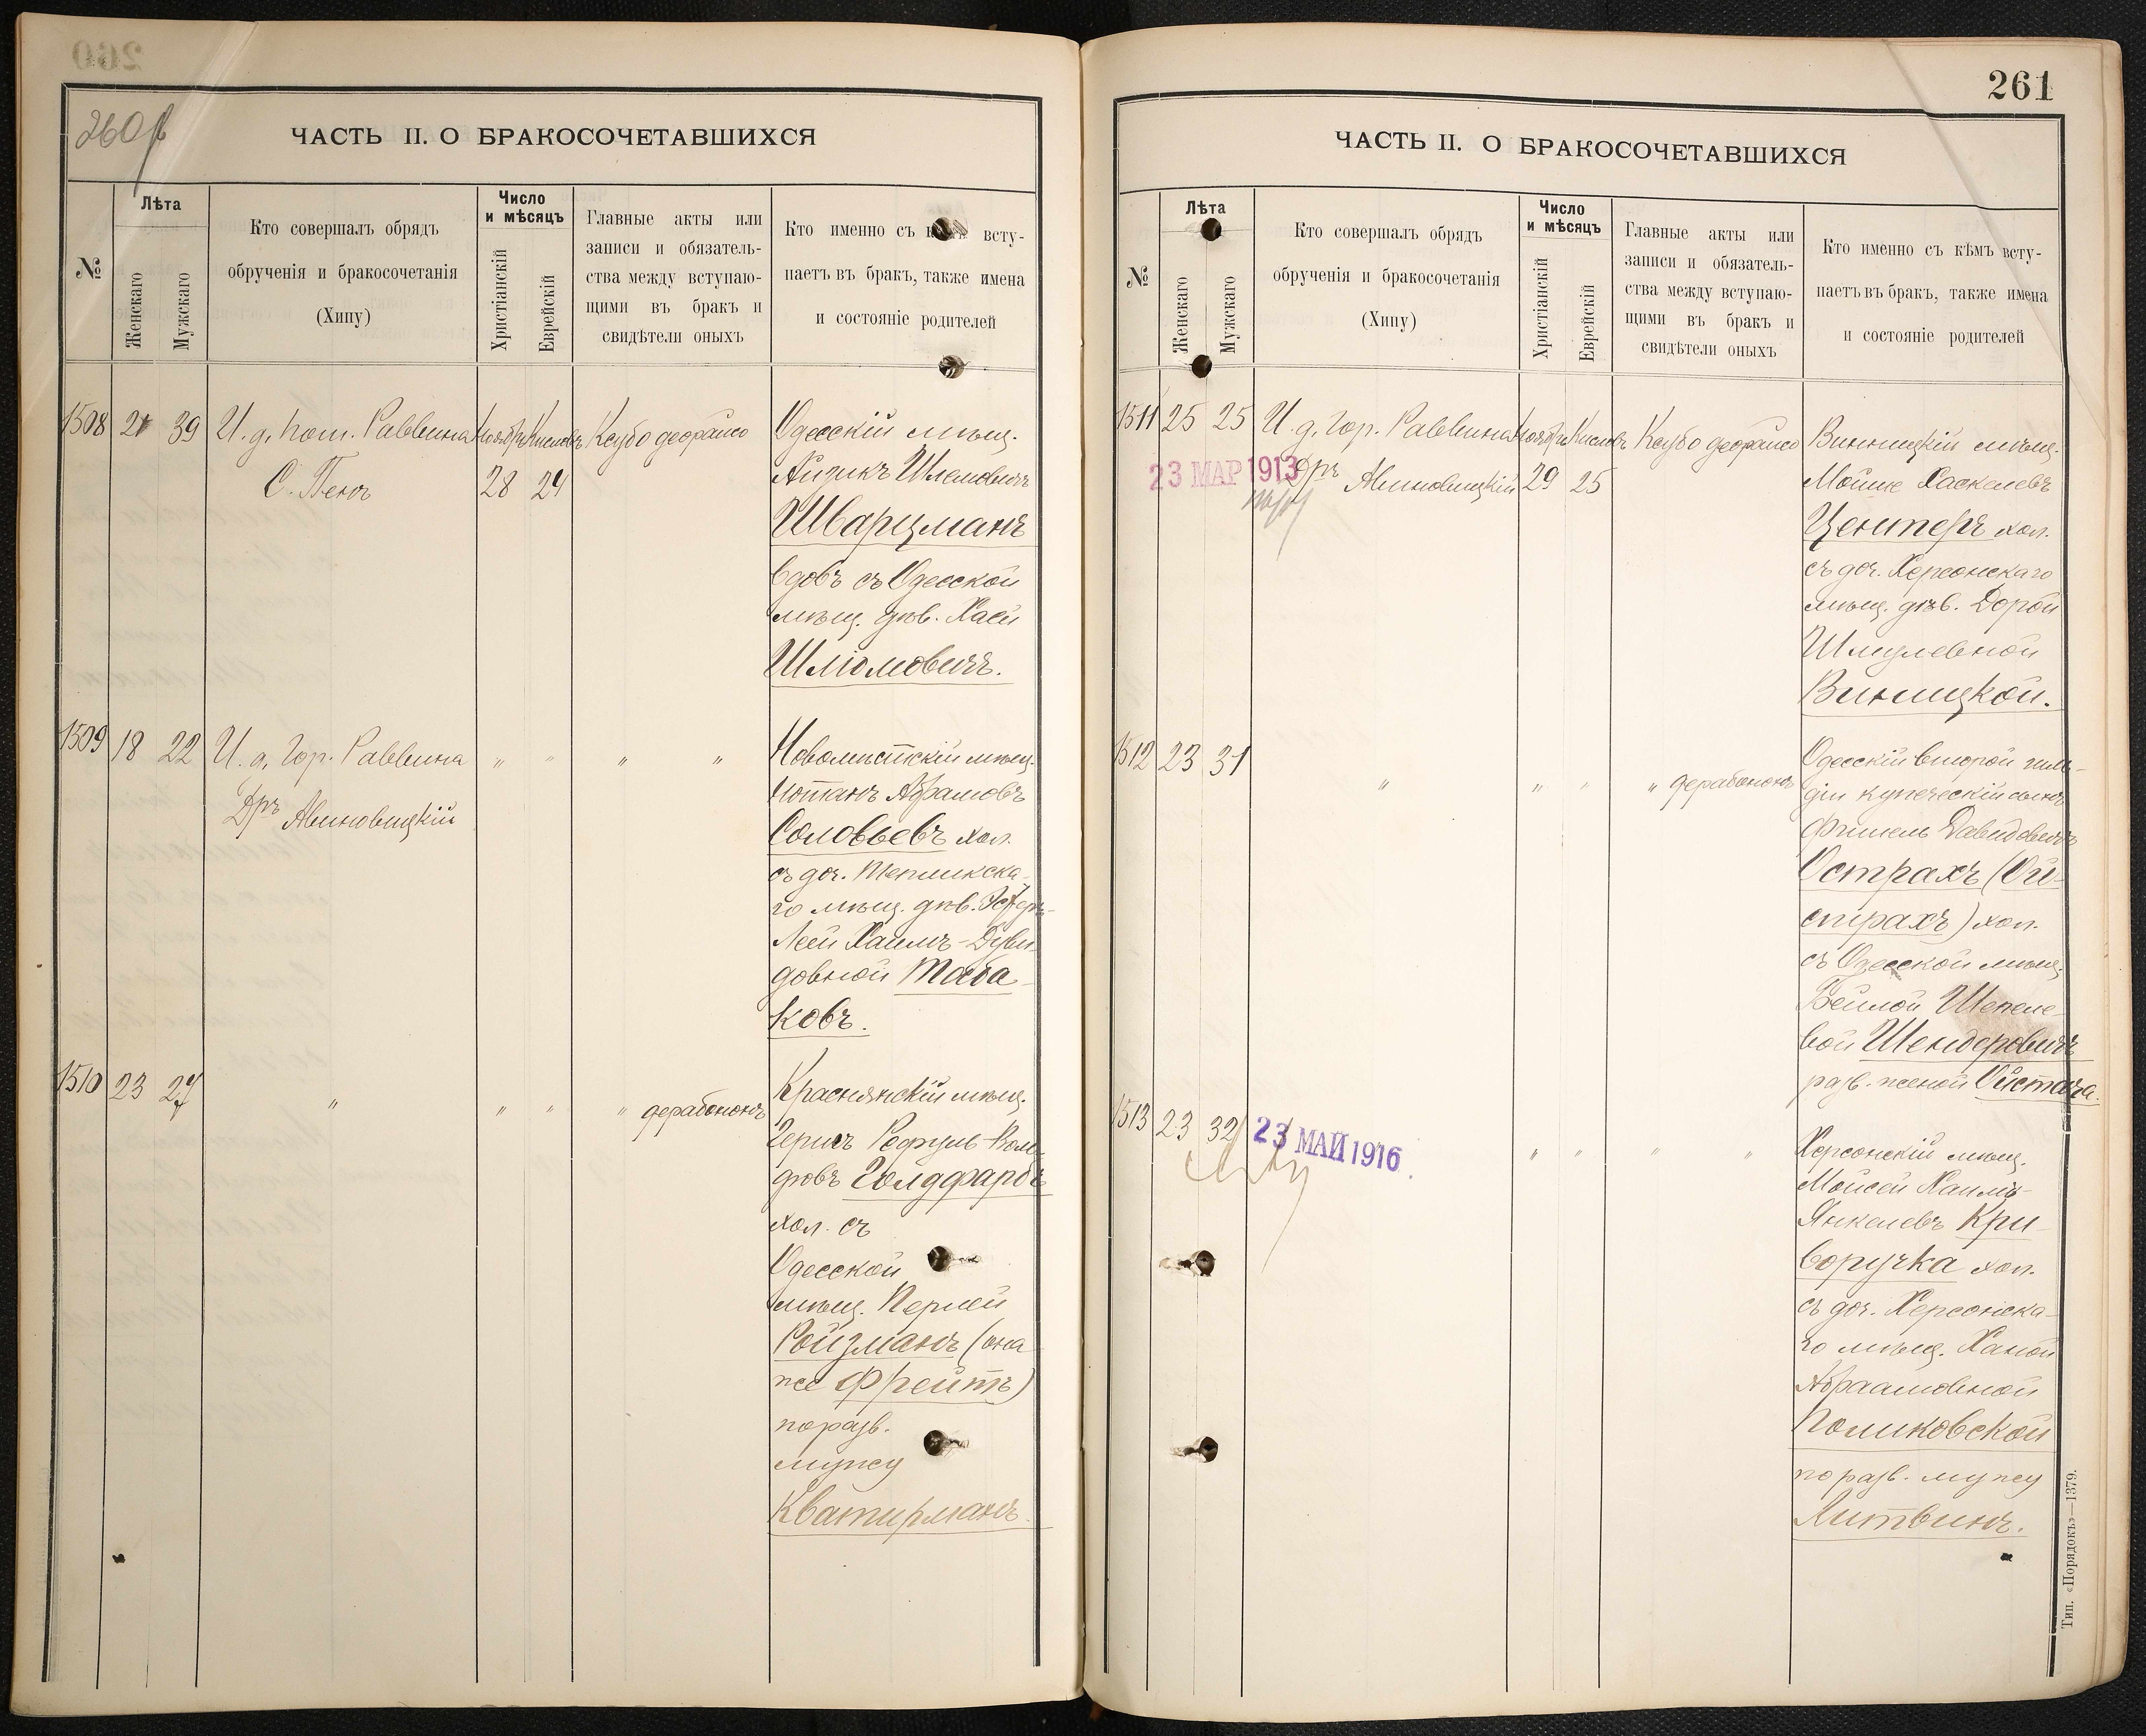 260
260
ЧАСТЬ II. О БРАКОСОЧЕТАВШИХСЯ
№
Лѣта
Женскаго
Мужскаго
Кто совершалъ обрядъ
обрученія и бракосочетанія
(Хипу)
Число
и мѣсяцъ
Христіанскій
Еврейскій
Главные акты или
записи и обязатель-
ства между вступаю-
щими въ бракъ и
свидѣтели оныхъ
Кто именно съ всту-
паетъ въ бракъ, также имена
и состояніе родителей
1508 21 39 И. д. пом. Раввина Ноябрь Кислевъ Ксубо деорайсо
С. Пенъ 28 24
Одесскій мѣщ.
Айзикъ Шлемовичъ
Шварцманъ
вдовъ съ Одесской
мѣщ. дѣв. Хаей
Шліомовичъ.
1509 18 22 И. д. Гор. Раввина " " " "
Дръ Авиновицкій
Новомѣстскій мѣщ.
Нотанъ Абрамовъ
Соловьевъ хол.
съ доч. Тепликска-
го мѣщ. дѣв. Эстеръ-
Леей Хаимъ-Дуви-
довной Таба-
ковъ.
1510 23 27 " " " " дерабононъ
Краснянскій мѣщ.
Гершъ Рефуль-Воль-
фовъ Голдфарбъ
хол. съ
Одесской
мѣщ. Перлей
Ройзманъ (она
же Фрейтъ)
по разв.
мужу
Кватирманъ.
261
ЧАСТЬ II. О БРАКОСОЧЕТАВШИХСЯ
№
Лѣта
Женскаго
Мужскаго
Кто совершалъ обрядъ
обрученія и бракосочетанія
(Хипу)
Число
и мѣсяцъ
Христіанскій
Еврейскій
Главные акты или
записи и обязатель-
ства между вступаю-
щими въ бракъ и
свидѣтели оныхъ
Кто именно съ кѣмъ всту-
паетъ въ бракъ, также имена
и состояніе родителей
1511 25 25 И. д. Гор. Раввина Ноябрь Кислевъ Ксубо деорайсо
23 МАР 1913
Дръ Авиновицкій 29 25
Винницкій мѣщ.
Мойше Хаскелевъ
Центеръ хол.
съ доч. Херсонскаго
мѣщ. дѣв. Дорой
Шмулевной
Виницкой.
1512 23 31 " " " " дерабононъ
Одесскій второй гиль-
діи купеческій сынъ
Фишель Давидовичъ
Острахъ (Ой-
страхъ) хол.
съ Одесской мѣщ.
Бейлой Шепсе-
вой Шендеровичъ
разв. женой Ойстача.
1513 23 32 " " " "
23 МАЙ 1916
Херсонскій мѣщ.
Мойсей Хаимъ-
Янкелевъ Кри-
воручка хол.
съ доч. Херсонска-
го мѣщ. Ханой
Абраамовной
Полиновской
по разв. мужу
Литвинъ.
Тип. «Порядокъ»—1379.